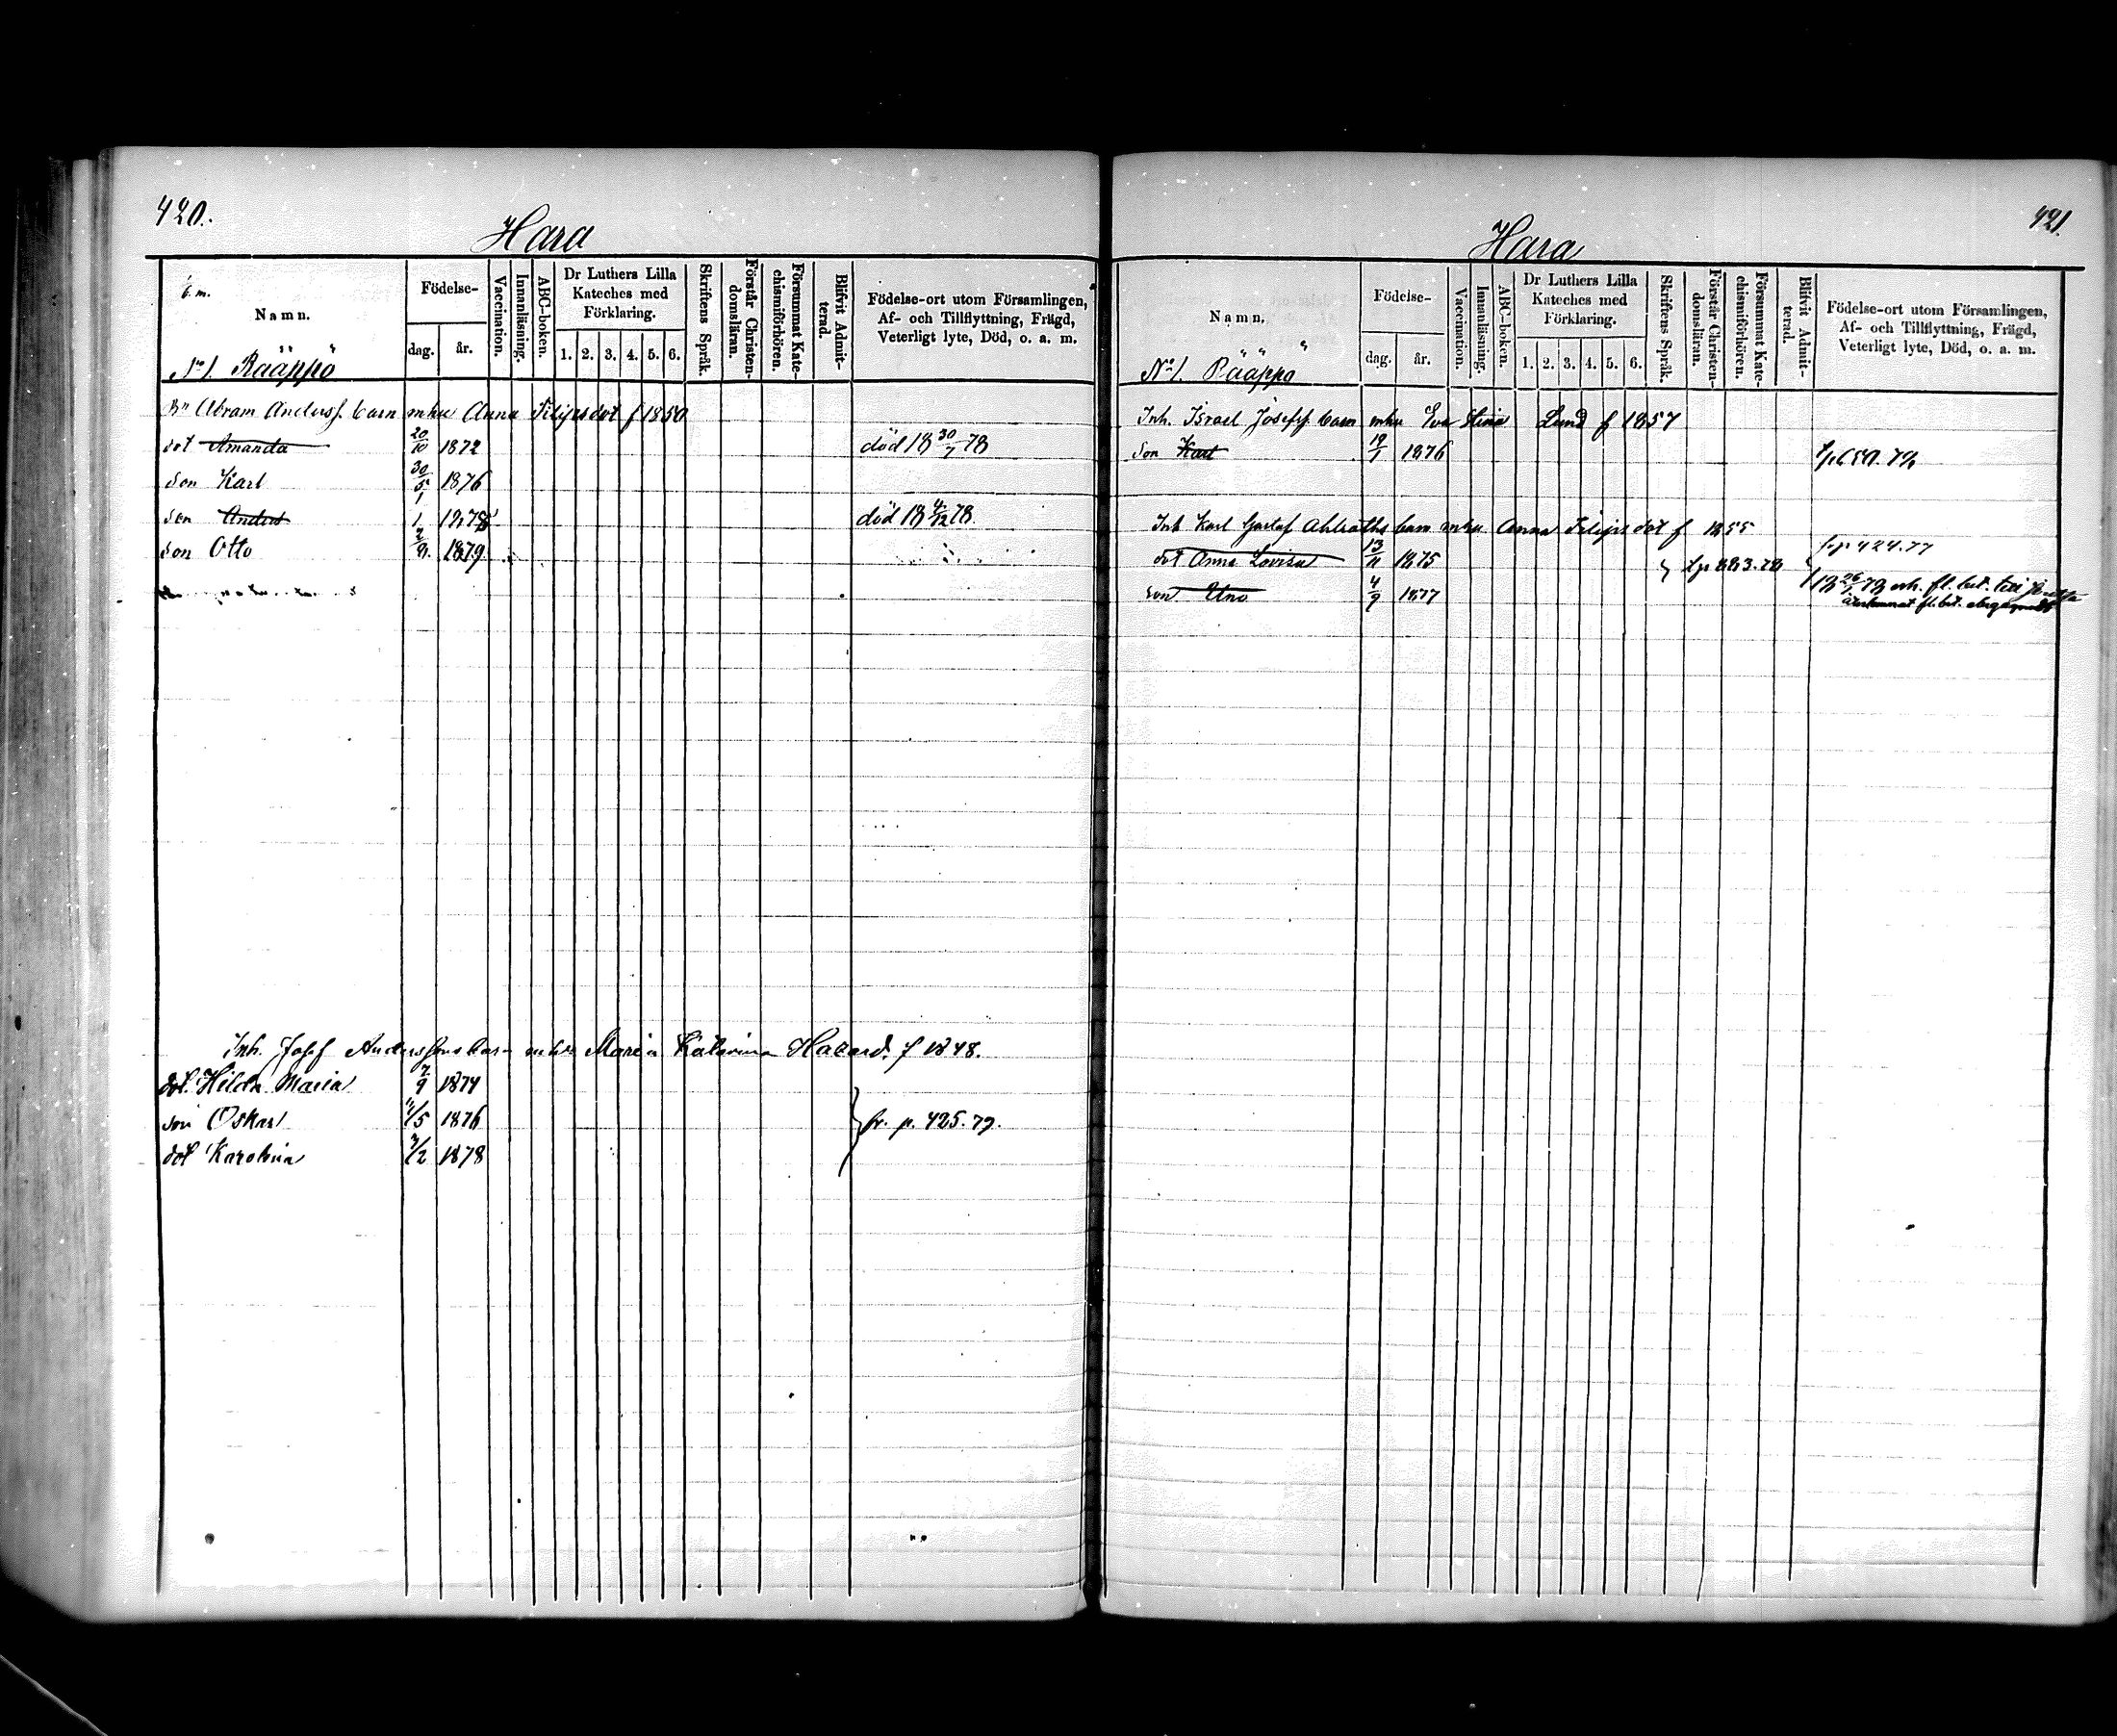 420.
Hara
b. m.
Namn.
Födelse-
dag.
år.
Vaccination.
Innanläsning.
ABC-boken.
Dr Luthers Lilla
Kateches med
Förklaring.
1. 2. 3. 4. 5. 6.
Skriftens Språk.
Förstår Christen-
domsläran.
Försummat Kate-
chismiförhören.
Blifvit Admit-
terad.
Födelse-ort utom Församlingen,
Af- och Tillflyttning, Frägd,
Veterligt lyte, Död, o. a. m.
No 1. Rääppö
Bn Abram Anderss. barn mhu Anna Filipsdot f 1850
dot Amanda 20/10 1872 död 18 30/7 78
son Karl 30/5 1876
son Anders 1/1 1878 död 18 4/12 78
son Otto 2/9 1879
Inh. Josef Anderssons barn m hu Maria Katarina f 1848.
dot. Hilda Maria 7/9 1874
son Oskar 11/5 1876
fr. p. 425. 79.
dot Karolina 1878
421.
Hara
Namn.
Födelse-
dag.
år.
Vaccination.
Innanläsning.
ABC-boken.
Dr Luthers Lilla
Kateches med
Förklaring.
1. 2. 3. 4. 5. 6.
Skriftens Språk.
Förstår Christen-
domsläran.
Försummat Kate-
chismiförhören.
Blifvit Admit-
terad.
Födelse-ort utom Församlingen,
Af- och Tillflyttning, Frägd,
Veterligt lyte, Död, o. a. m.
No 1. Rääppö
Inh. Israel Josefss. barn mhu Eva Stina Lund f 1857
son Karl 19/1 1876
Inh Karl Gustaf Ahlroths barn mhu Anna Filips dot f 1855
fr p 424. 77
dot Anna Lovisa 13/11 1875
son Uno 4/9 1877
18 26/1 78 erh. fl. bet. till